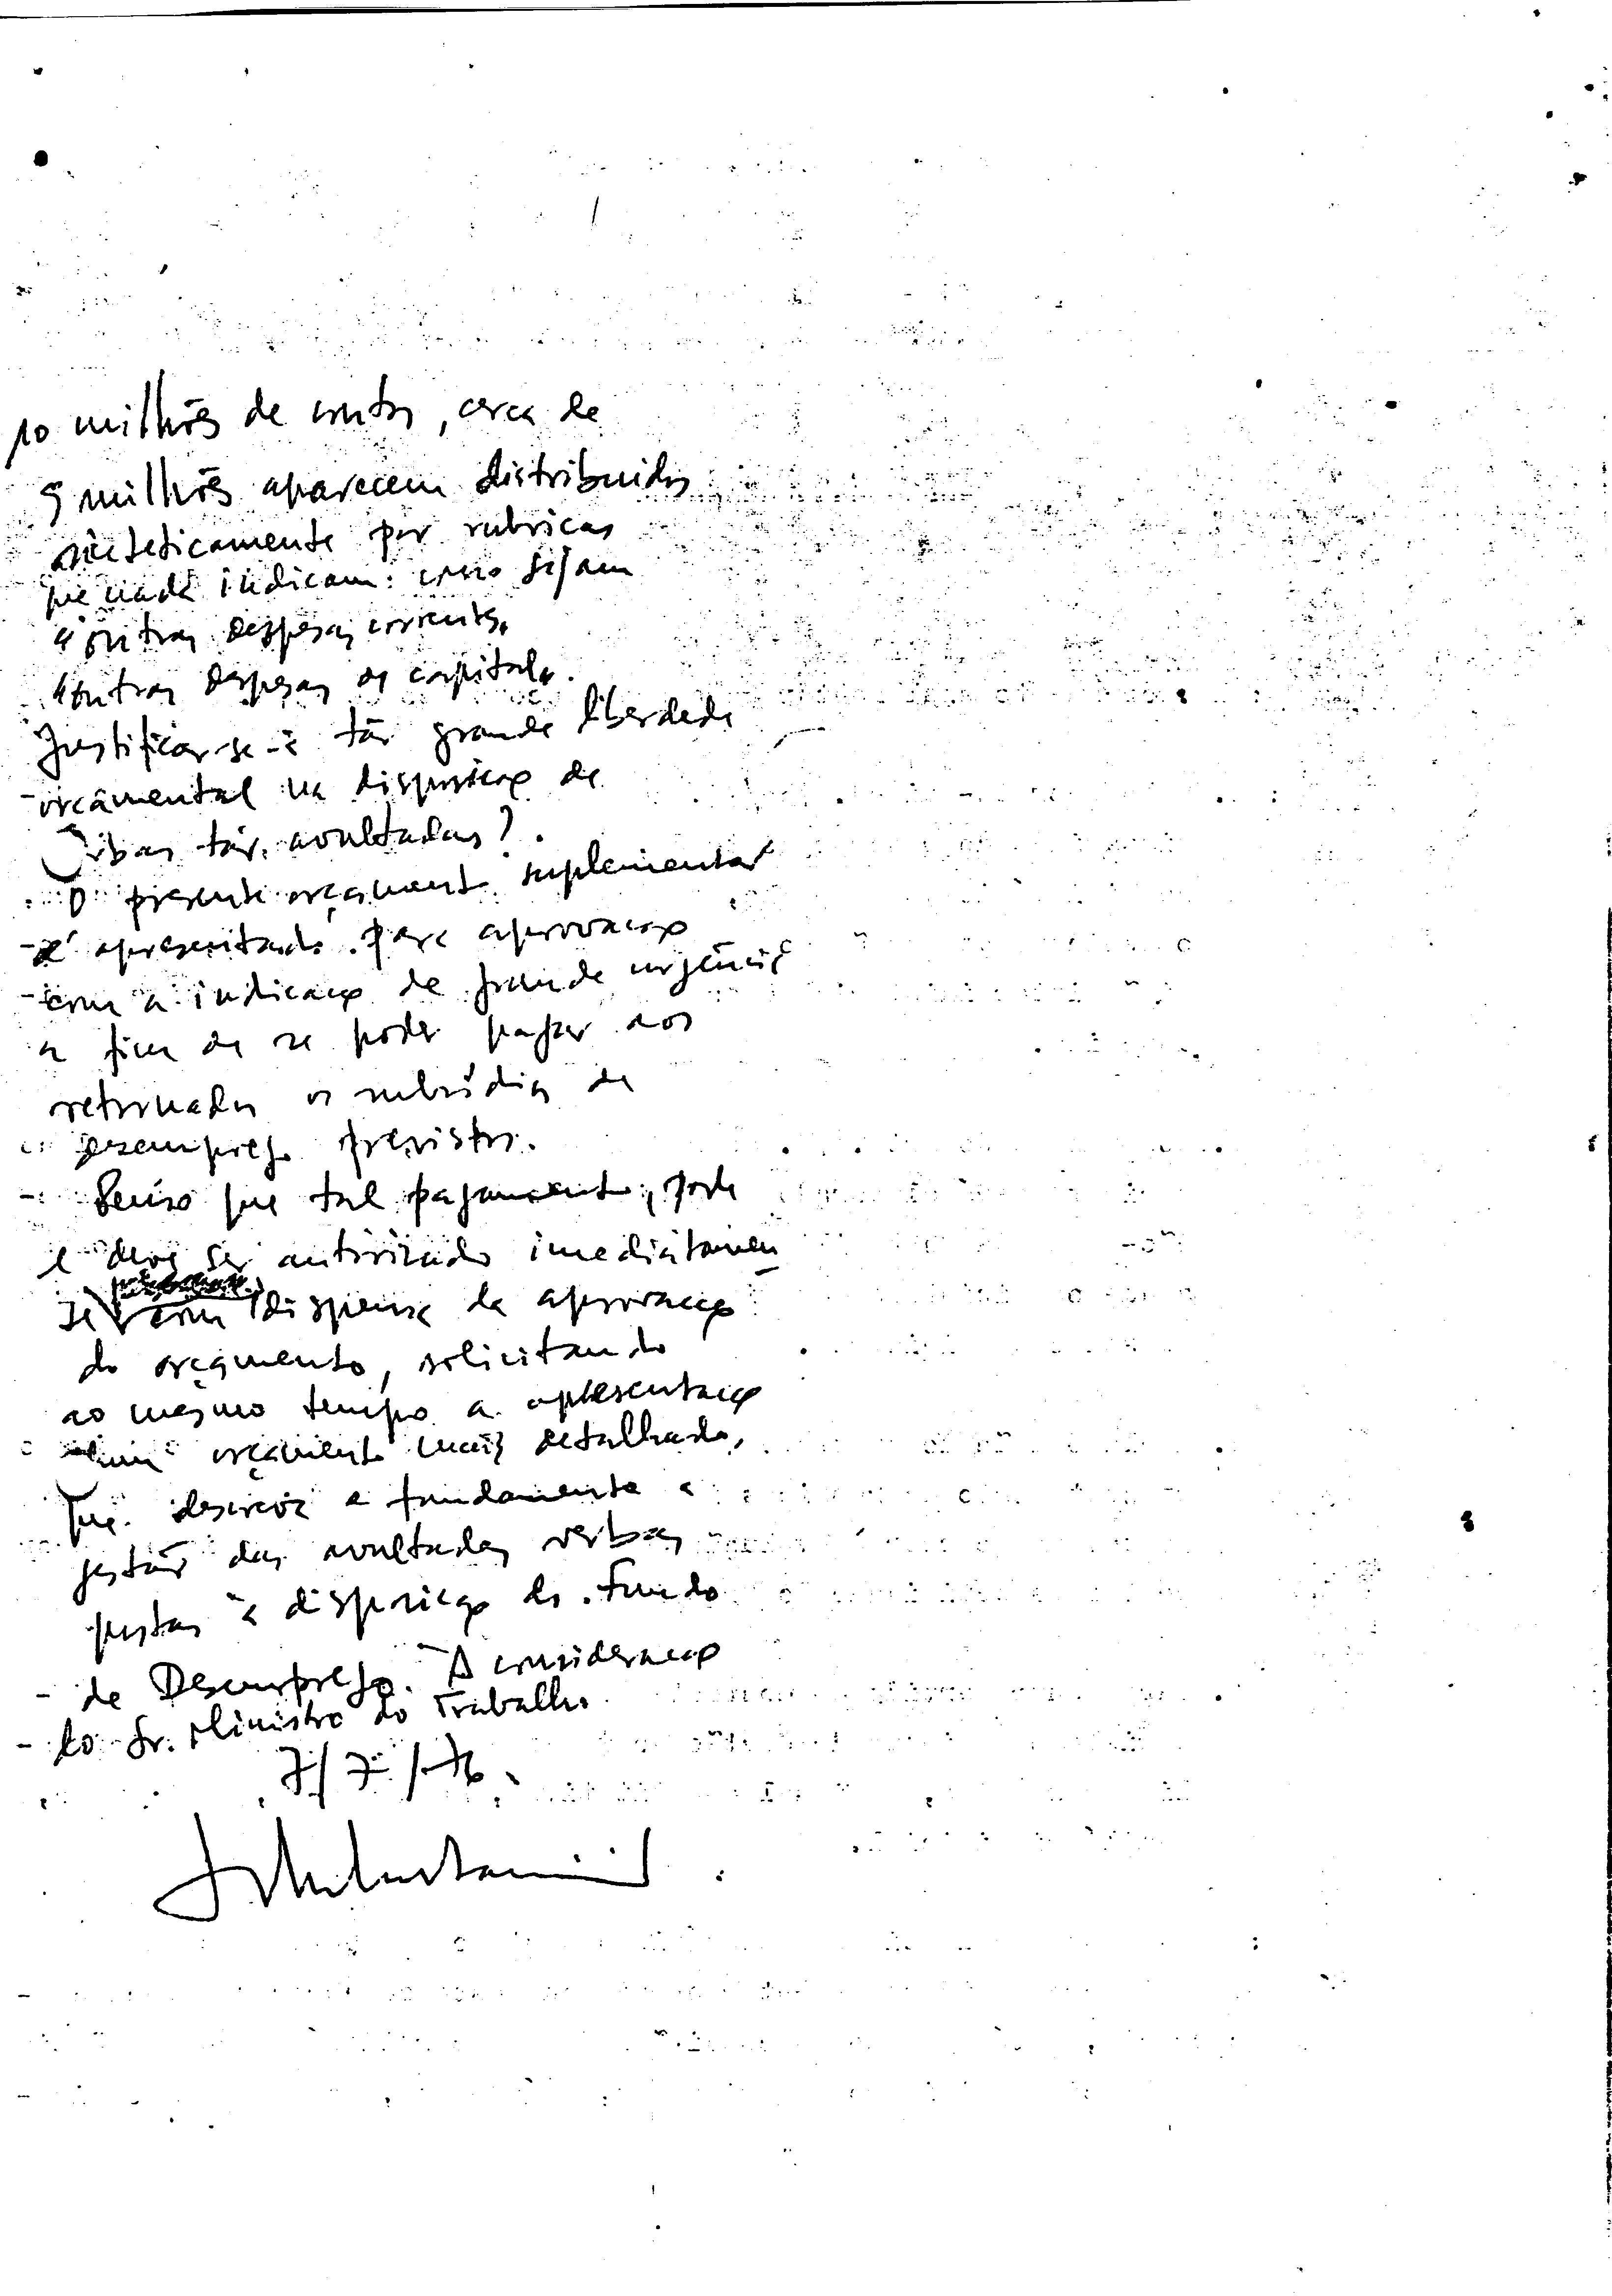 10 milhões de contos, cerca de
9 milhões aparecem distribuidos
sinteticamente por rubricas
que nada indicam: como sejam
"outras despesas correntes"
"outras despesas de capital".
Justificar-se-á tão grande liberdade
orçamental na disposição de
verbas tão avultadas?
O presente orçamento suplementar
é apresentado para aprovação
com a indicação de grande urgência
a fim de se poder pagar aos
retornados os subsídios de
desemprego previstos.
Penso que tal pagamento, pode
e deve ser autorizado imediatamen
te com dispensa da aprovação
do orçamento, solicitando
ao mesmo tempo a apresentação
dum orçamento mais detalhado,
que descreva e fundamente a
gestão das avultadas verbas
postas à disposição do Fundo
de Desemprego. À consideração
do Sr. Ministro do Trabalho
7/7/76.